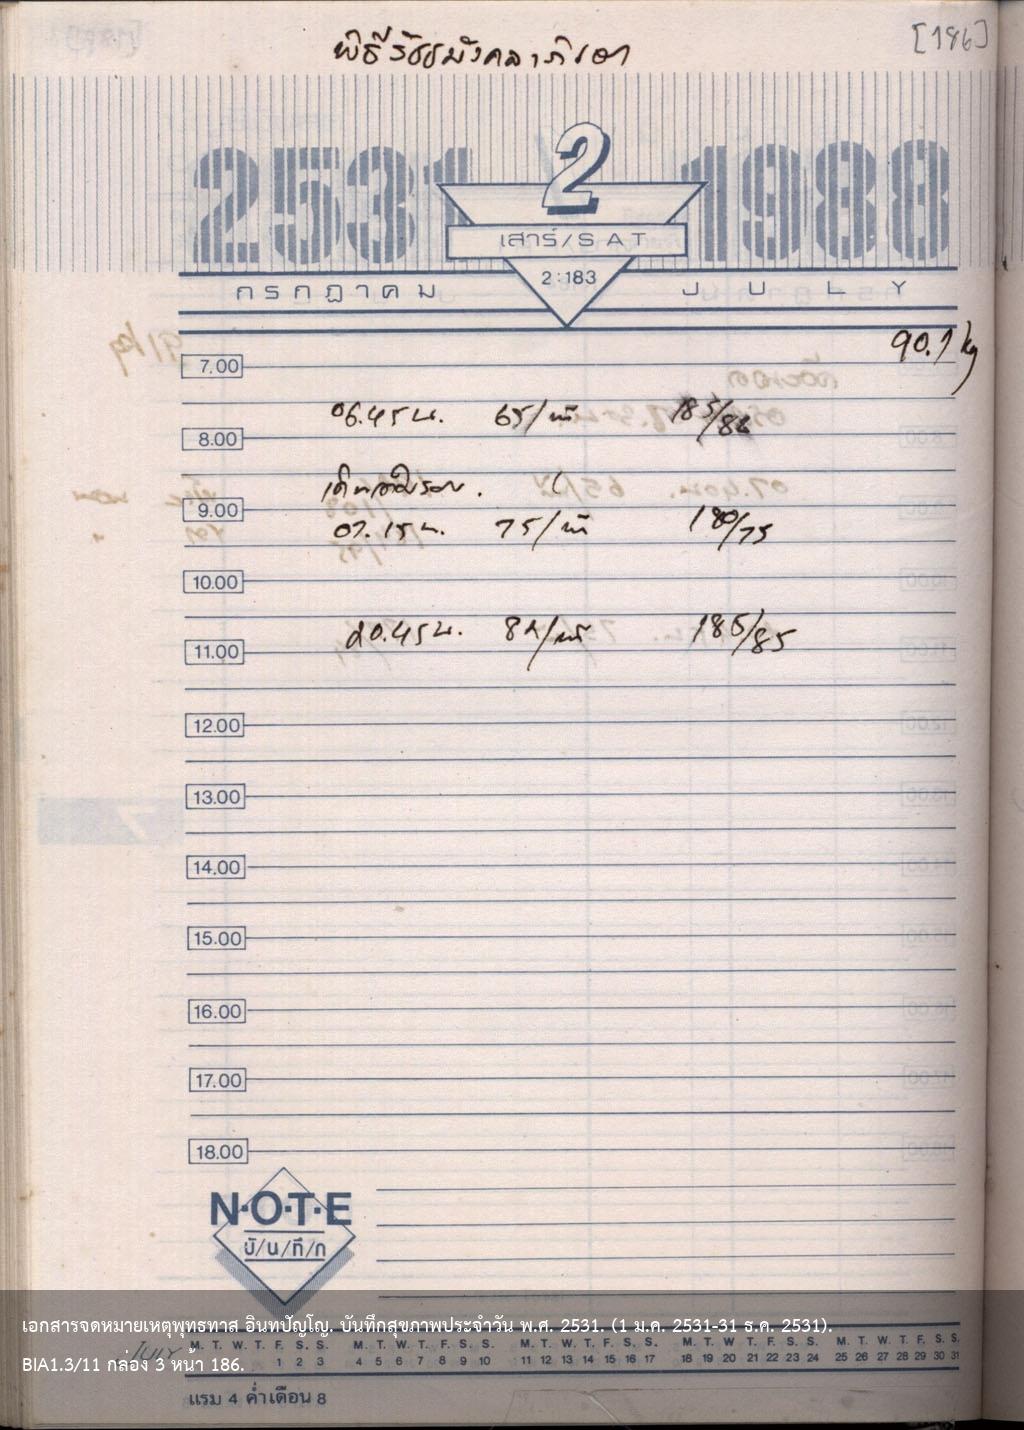 [186]
พิธีรัชมังคลาภิเษก
2531 1988
2
เสาร์/SAT
2:183
กรกฎาคม JULY
90.1 kg
7.00
06.45 น. 65/นาที 185/82
8.00
เดินสามรอบ.
9.00
07.15 น. 75/นาที 180/75
10.00
20.45 น. 82/นาที 185/85
11.00
12.00
13.00
14.00
15.00
16.00
17.00
18.00
N·O·T·E
บั/น/ทึ/ก
เอกสารจดหมายเหตุพุทธทาส อินทปัญโญ. บันทึกสุขภาพประจำวัน พ.ศ. 2531. (1 ม.ค. 2531-31 ธ.ค. 2531).
M. T. W. T. F. S. S. M. T. W. T. F. S. S. M. T. W. T. F. S. S. M. T. W. T. F. S. S. M. T. W. T. F. S. S.
JULY 1 2 3 4 5 6 7 8 9 10 11 12 13 14 15 16 17 18 19 20 21 22 23 24 25 26 27 28 29 30 31
BIA1.3/11 กล่อง 3 หน้า 186.
แรม 4 ค่ำเดือน 8